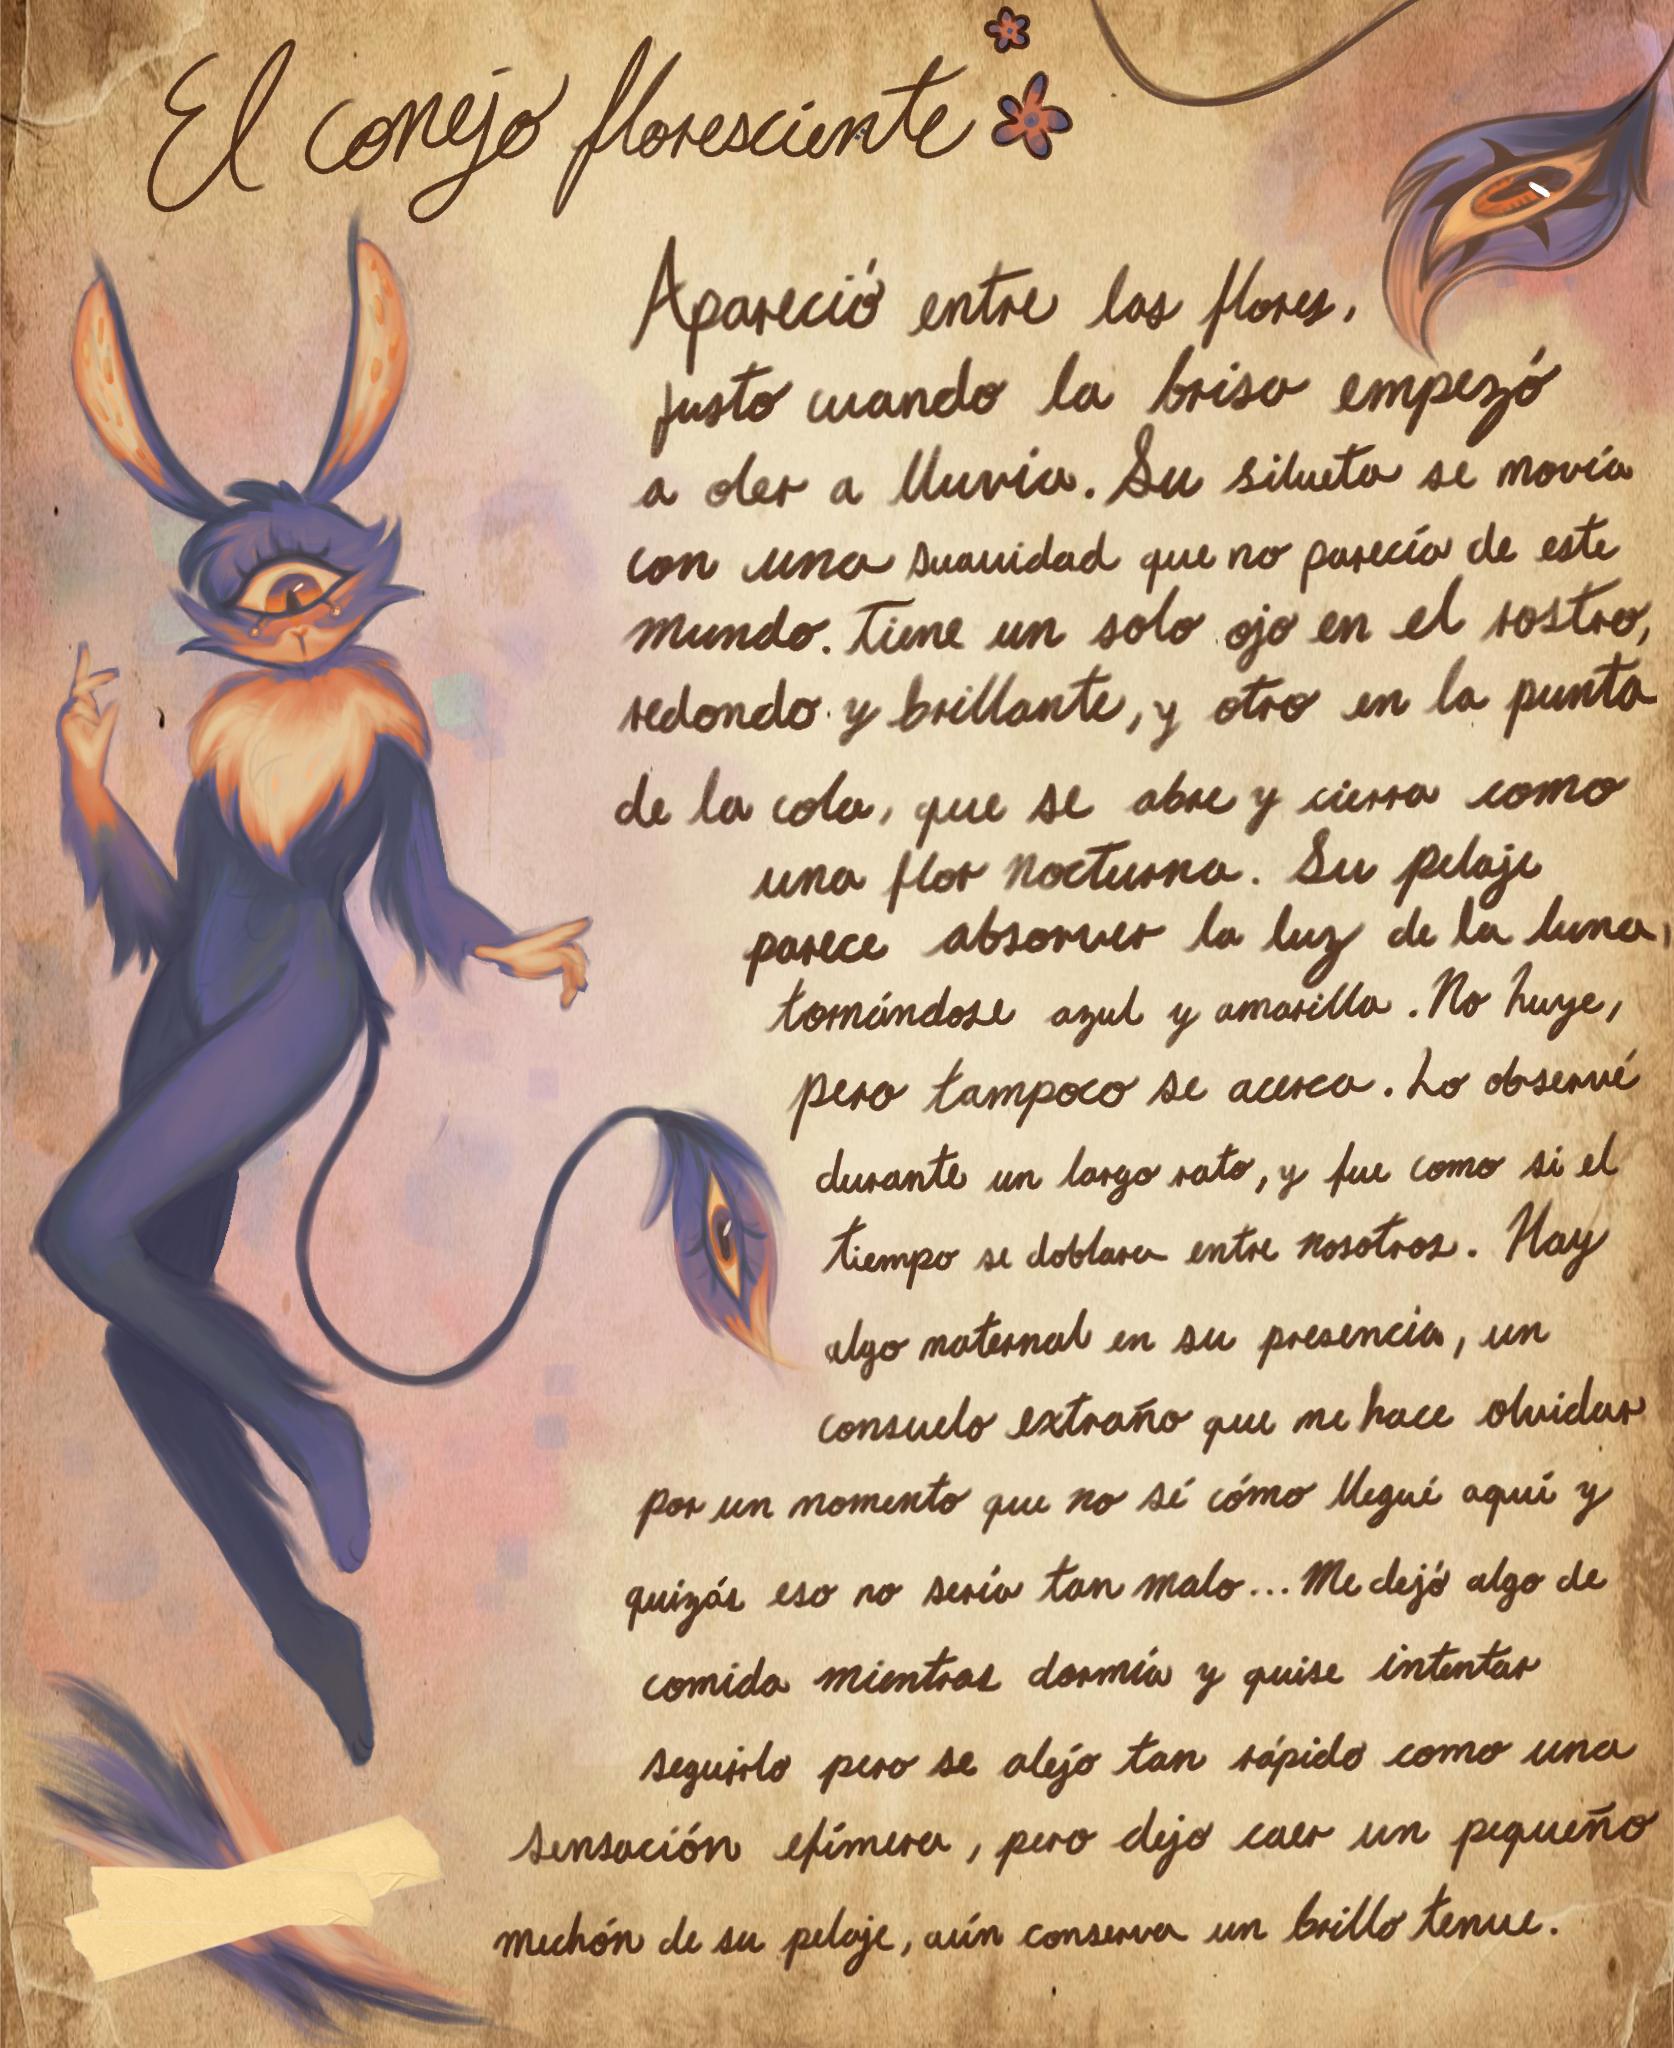 El conejo floresciente
Apareció entre las flores,
justo cuando la brisa empezó
a oler a lluvia. Su silueta se movía
con una suavidad que no parecía de este
mundo. Tiene un solo ojo en el rostro,
redondo y brillante, y otro en la punta
de la cola, que se abre y cierra como
una flor nocturna. Su pelaje
parece absorver la luz de la luna,
tornándose azul y amarilla. No huye,
pero tampoco se acerca. Lo observé
durante un largo rato, y fue como si el
tiempo se doblara entre nosotros. Hay
algo maternal en su presencia, un
consuelo extraño que me hace olvidar
por un momento que no sé cómo llegué aquí y
quizás eso no sería tan malo... Me dejó algo de
comida mientras dormía y quise intentar
seguirlo pero se alejo tan rápido como una
sensación efímera, pero dejo caer un pequeño
mechón de su pelaje, aún conserva un brillo tenue.